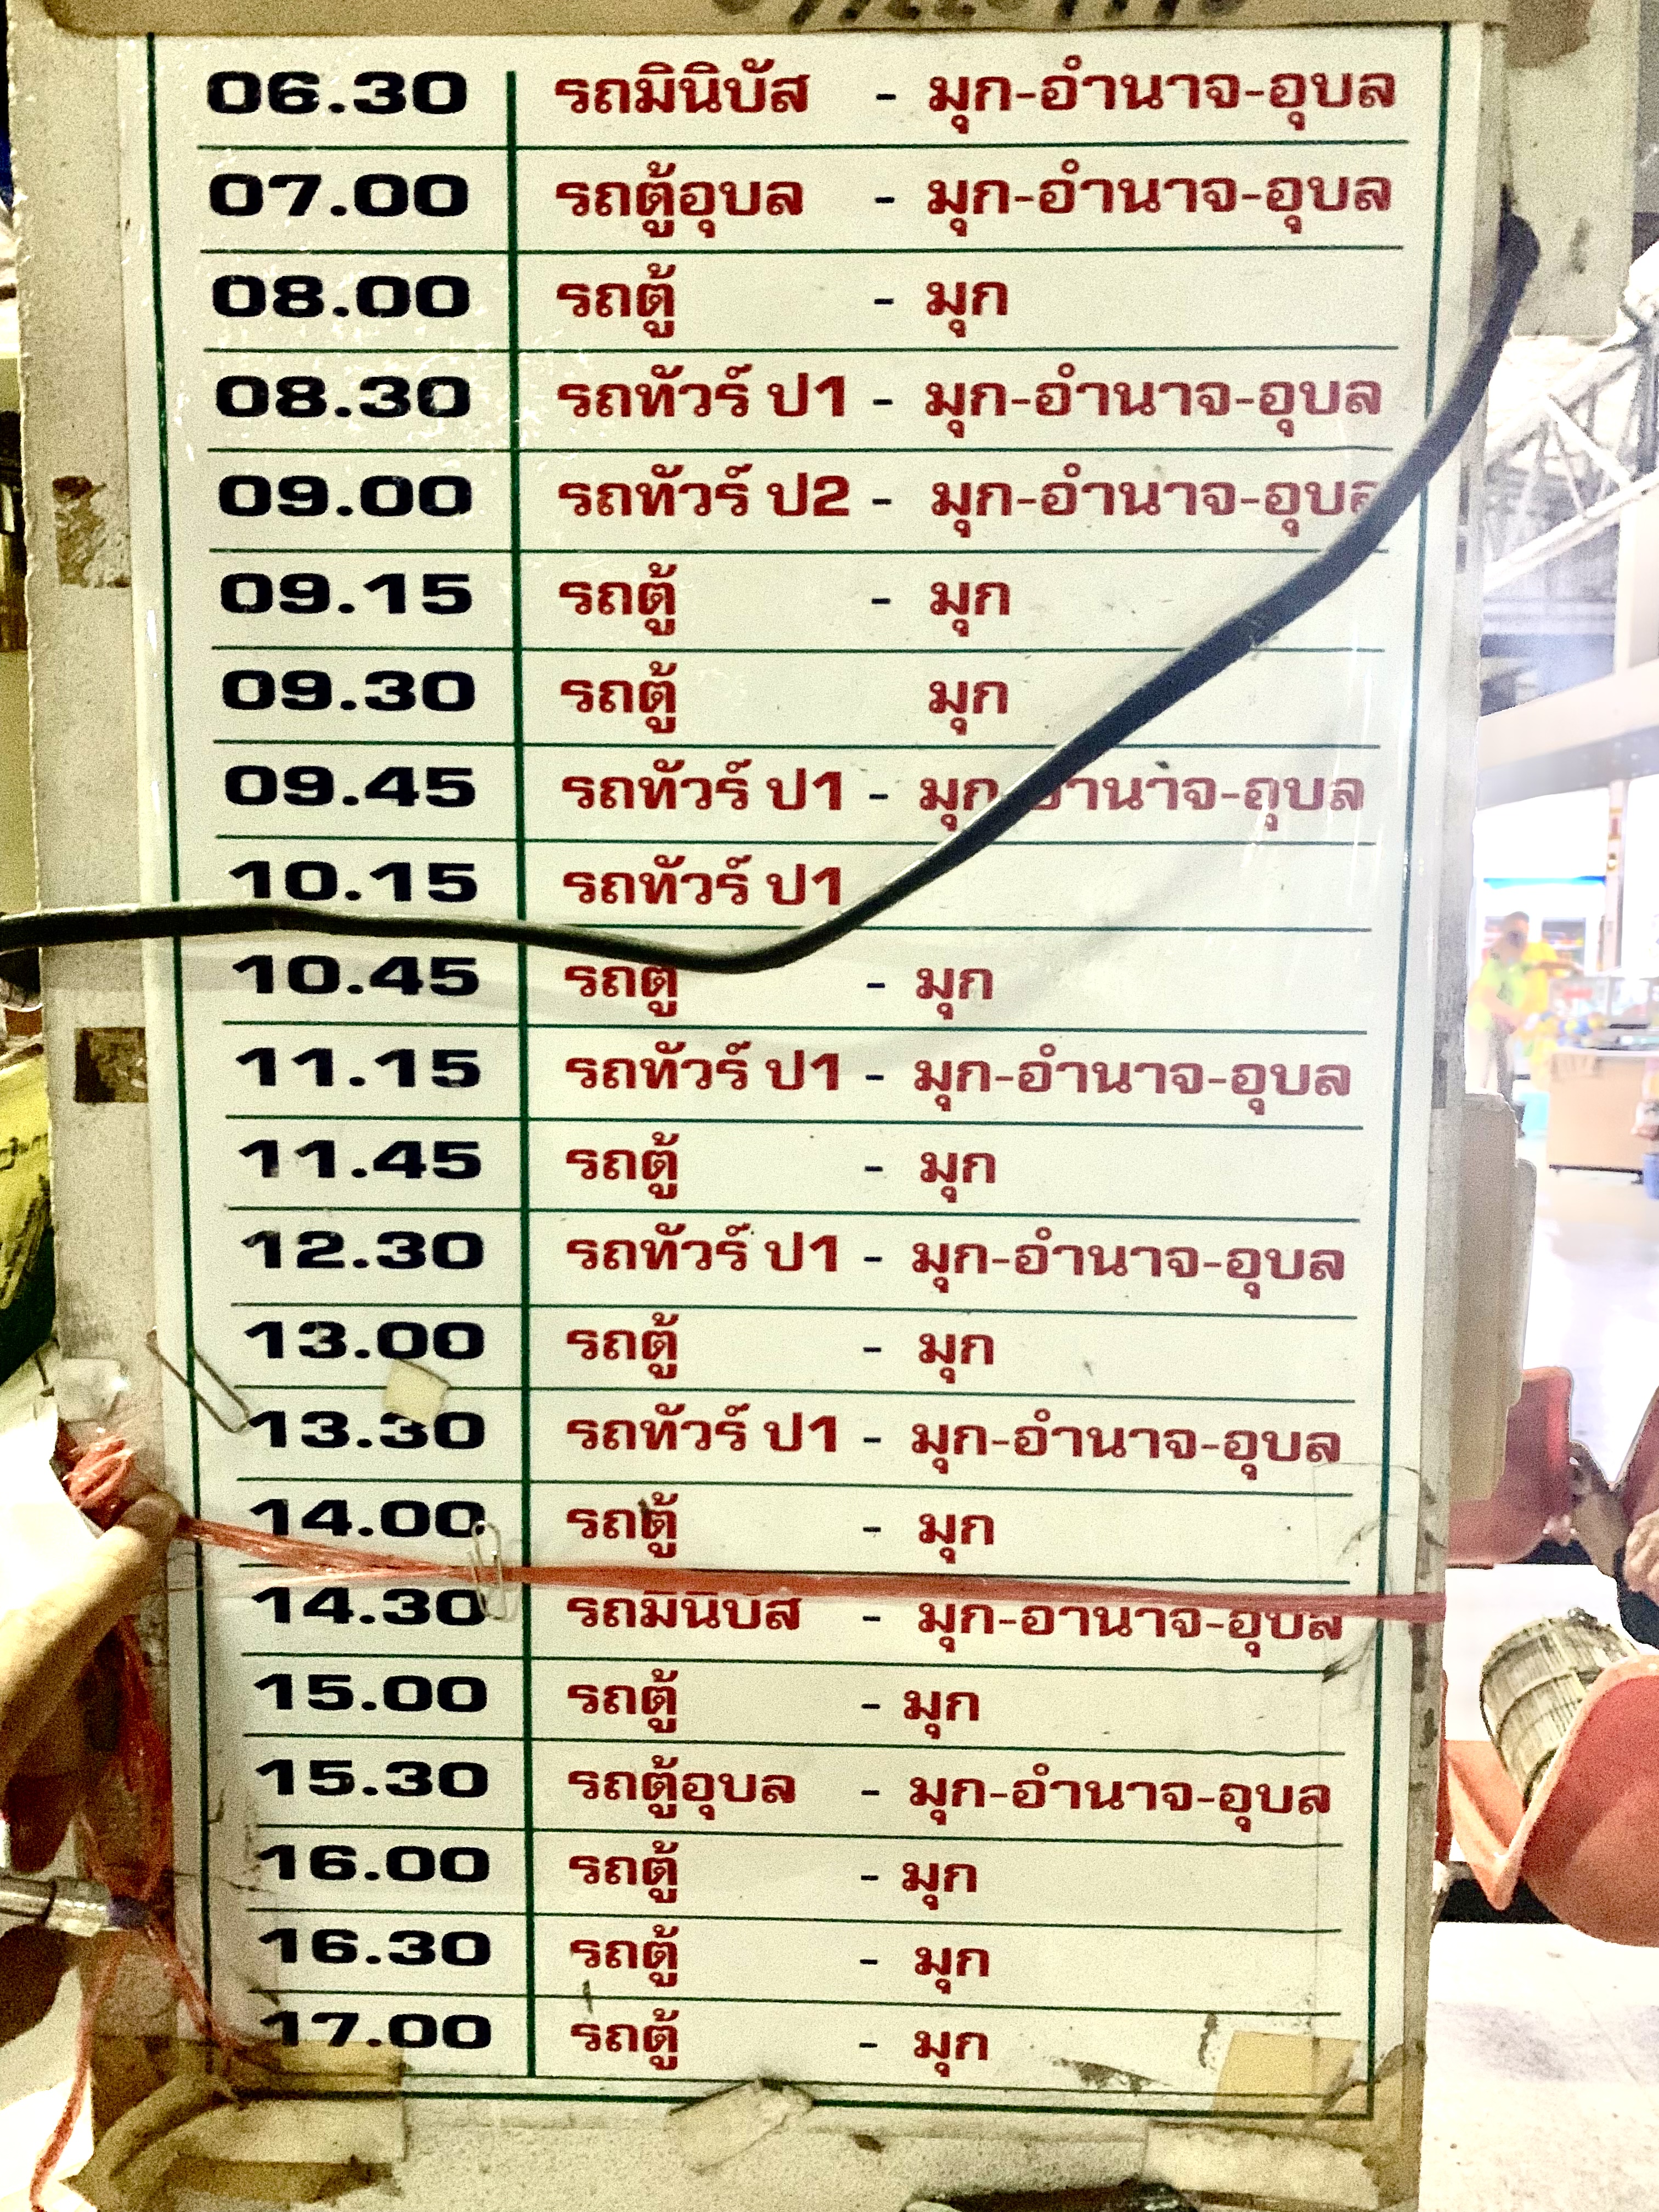 06.30 รถมินิบัส - มุก-อำนาจ-อุบล
07.00 รถตู้อุบล - มุก-อำนาจ-อุบล
08.00 รถตู้ - มุก
08.30 รถทัวร์ ป1 - มุก-อำนาจ-อุบล
09.00 รถทัวร์ ป2 - มุก-อำนาจ-อุบล
09.15 รถตู้ - มุก
09.30 รถตู้ มุก
09.45 รถทัวร์ ป1 - มุก-อำนาจ-อุบล
10.15 รถทัวร์ ป1
10.45 รถตู้ - มุก
11.15 รถทัวร์ ป1 - มุก-อำนาจ-อุบล
11.45 รถตู้ - มุก
12.30 รถทัวร์ ป1 - มุก-อำนาจ-อุบล
13.00 รถตู้ - มุก
13.30 รถทัวร์ ป1 - มุก-อำนาจ-อุบล
14.00 รถตู้ - มุก
14.30 รถมินิบัส - มุก-อำนาจ-อุบล
15.00 รถตู้ - มุก
15.30 รถตู้อุบล - มุก-อำนาจ-อุบล
16.00 รถตู้ - มุก
16.30 รถตู้ - มุก
17.00 รถตู้ - มุก